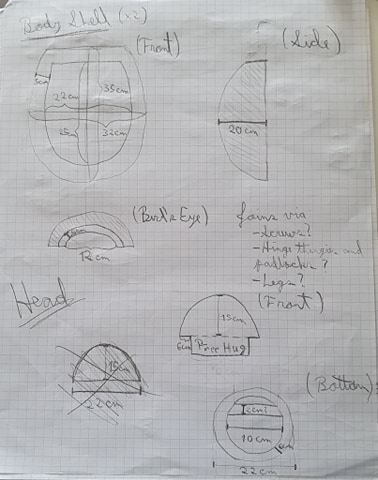 Body Shell (x2)
(Front)
(Side)
5cm
22cm
35cm
25cm
32cm
20cm
(Bird's Eye)
12cm
joins via
- Screws?
- Hinge thingies and
padlocks?
- Legs?
Head
(Front)
15cm
6cm
Free Hug
15cm
22cm
(Bottom)
2cm?
10cm
22cm